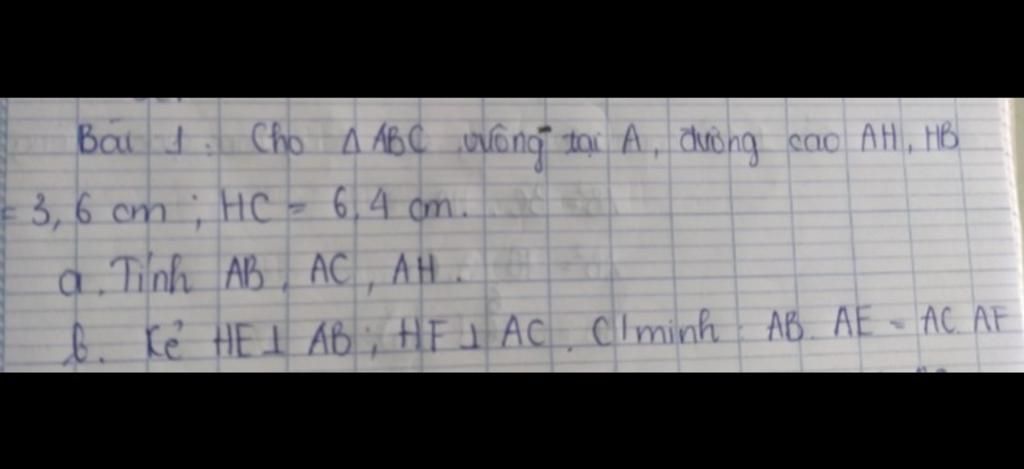 Bài 1. Cho Δ ABC vuông tại A, đường cao AH, HB
= 3,6 cm ; HC = 6,4 cm.
a. Tính AB, AC, AH.
b. Kẻ HE ⊥ AB ; HF ⊥ AC. C/minh: AB. AE = AC. AF